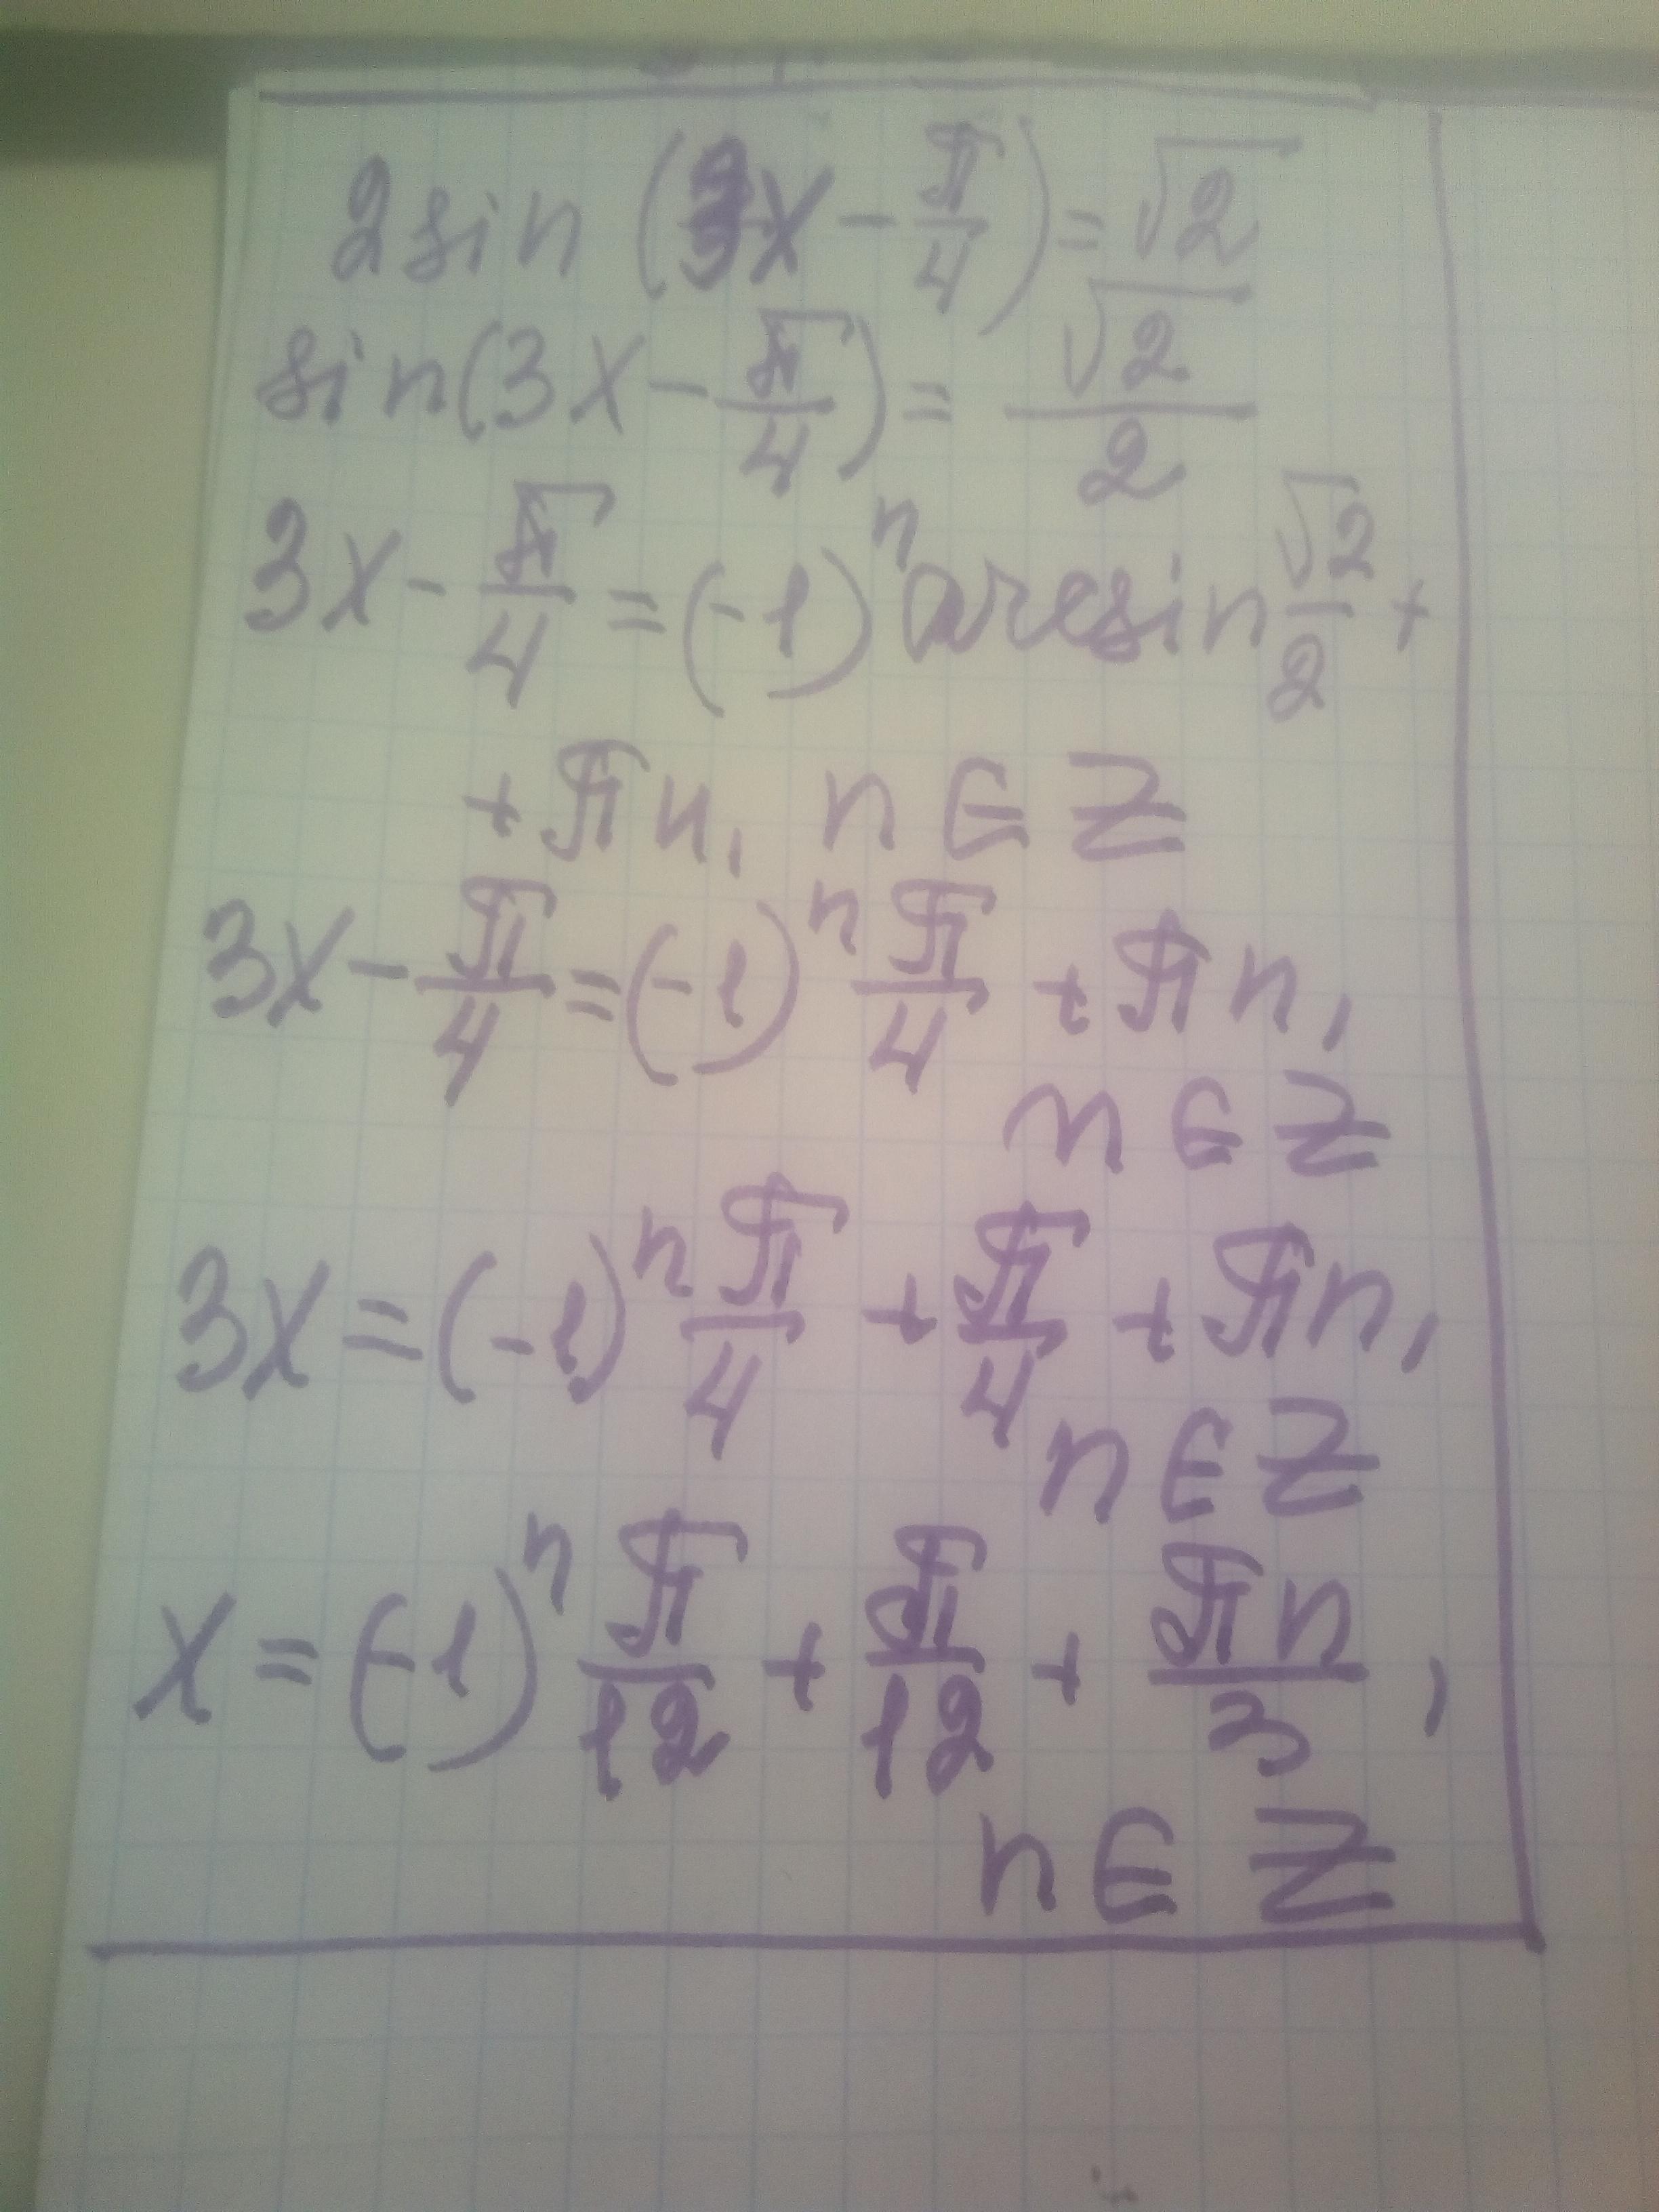 2 sin (3x - π/4) = √2
sin(3x - π/4) = √2/2
3x - π/4 = (-1)ⁿ arcsin √2/2 +
+ πn, n ∈ Z
3x - π/4 = (-1)ⁿ π/4 + πn,
n ∈ Z
3x = (-1)ⁿ π/4 + π/4 + πn,
n ∈ Z
x = (-1)ⁿ π/12 + π/12 + πn/3,
n ∈ Z